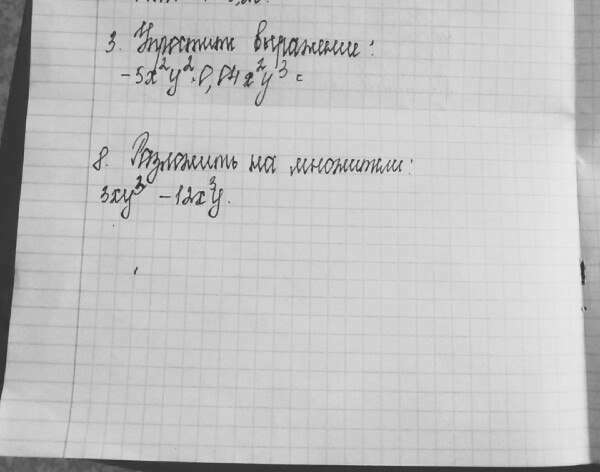 3. Упростить выражение:
-5x²y²·0,04x²y³=
8. Разложить на множители:
3xy³ -12x³y.